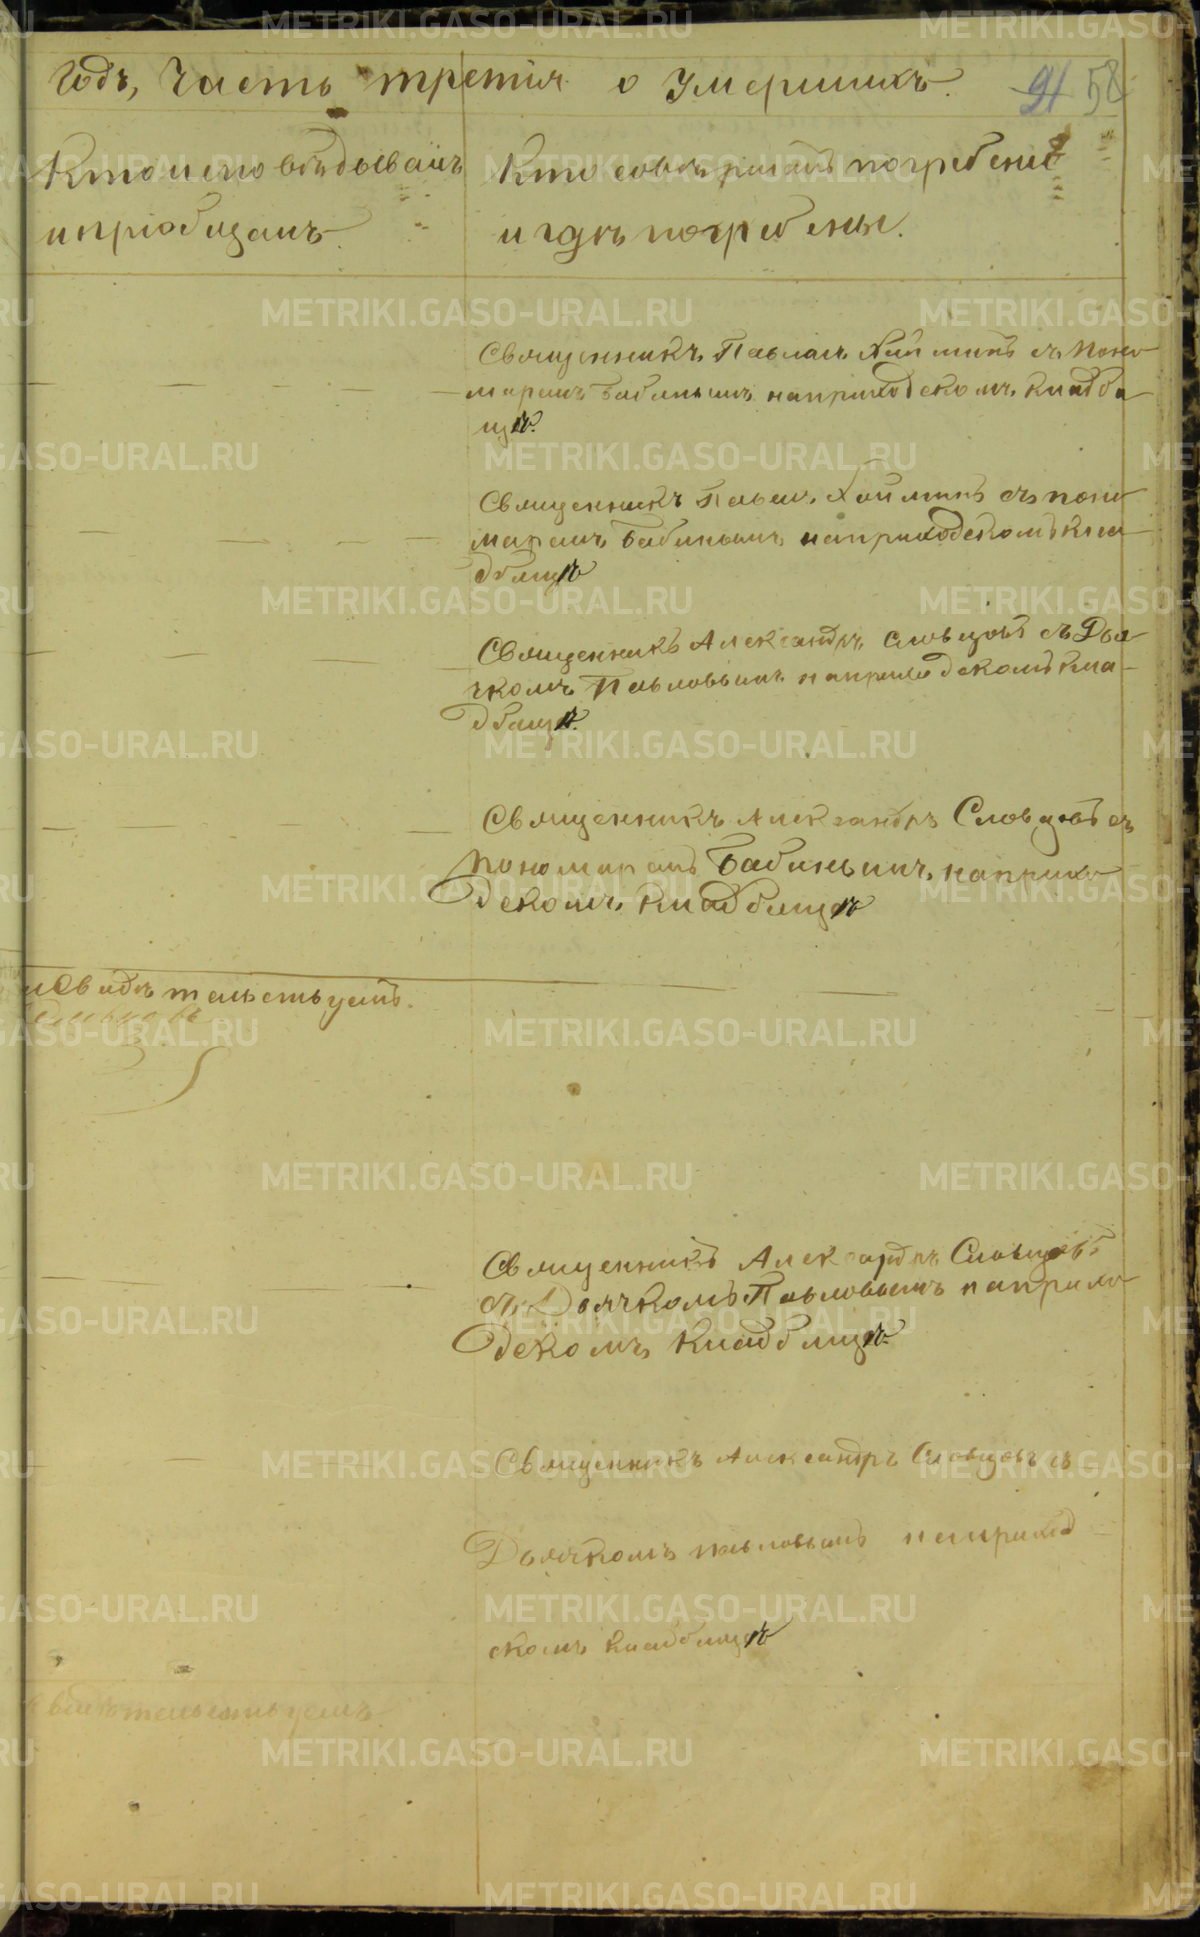 Годъ, Часть третія о Умершихъ. 91 58
Кто исповѣдывалъ
и пріобщалъ.
Кто совершалъ погребеніе
и гдѣ погребены.
Священникъ Павелъ Хай минъ съ Поно
маремъ Бабинымъ на приходскомъ кладби
щѣ.
Священникъ Павелъ Хайминъ съ поно
маремъ Бабинымъ на приходскомъ кла
дбищѣ
Священникъ Александръ Словцовъ съ Дья
чкомъ Павловымъ на приходскомъ кла
дбищѣ.
Священникъ Александръ Словцовъ съ
Пономаремъ Бабинымъ на прихо
дскомъ кладбищѣ
и Свидѣтельствуетъ.
Словцовъ
Священникъ Александръ Словцовъ
съ Дьячкомъ Павловымъ на прихо
дскомъ кладбищѣ.
Священникъ Александръ Словцовъ съ
Дьячкомъ Павловымъ на приход
скомъ кладбищѣ
свидѣтельствуемъ
METRIKI.GASO-URAL.RU